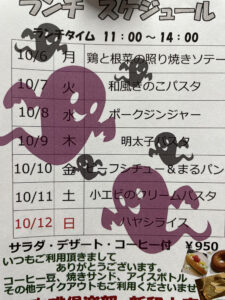 ランチ スケジュール
ランチタイム 11：00～14：00
10/6 月 鶏と根菜の照り焼きソテー
10/7 火 和風きのこパスタ
10/8 水 ポークジンジャー
10/9 木 明太子パスタ
10/10 金 ビーフシチュー&まるパン
10/11 土 小エビのクリームパスタ
10/12 日 ハヤシライス
サラダ・デザート・コーヒー付 ¥950
いつもご利用頂きまして
ありがとうございます。
コーヒー豆、焼きサンド、アイスボトル
その他テイクアウトもご利用くださいませ